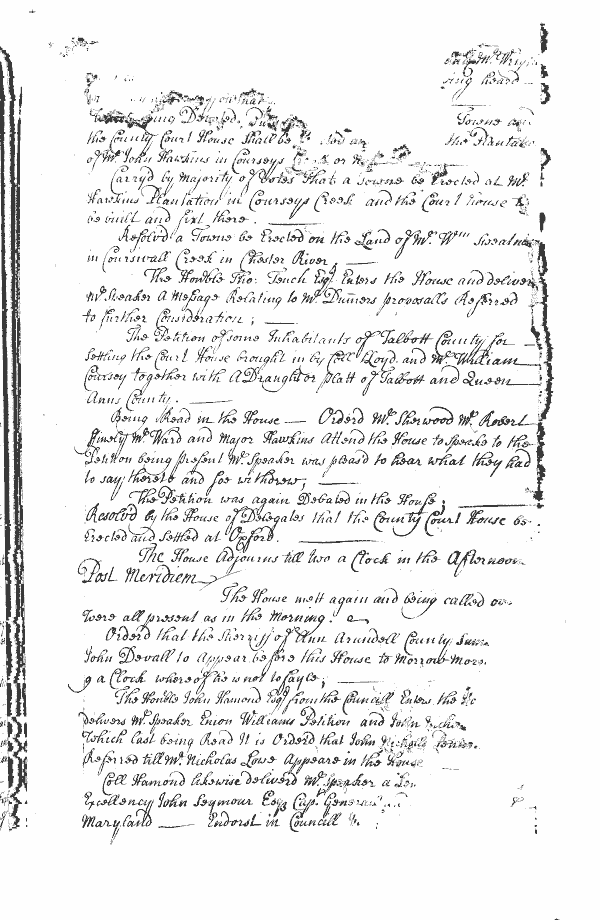 Mr. Wrig
ing heard
being Debated. Put Towne and
the County Court House Shall be the Plantaco
of Mr. John Hawkins in Courseys or
Carryd by Majority of Votes That a Towne be Erected at Mr.
Hawkins Plantation in Courseys Creek and the Court house to
be built and fixt there.
Resolvd a Towne be Erected on the Land of Mr. Wm. Sweatnam
in Coursivall Creek in Chester River,
The Honble Tho: Tench Esqr Enters the House and deliver
Mr. Speaker A Message Relating to Mr. Dumers proposalls Referred
to further Consideration;
The Petition of some Inhabitants of Talbott County for
settling the Court House brought in by Coll Lloyd. and Mr. William
Coursey together with A Draught or platt of Talbott and Queen
Anns County.
Being Read in the House — Orderd Mr. Sherwood Mr. Robert
Finely Mr. Ward and Major Hawkins Attend the House to Speake to the
Petition being present Mr. Speaker was pleasd to hear what they had
to say thereto and soe withdrew;
The Petition was again Debated in the House;
Resolvd by the House of Delegates that the County Court House be
Erected and settled at Oxford.
The House Adjourns till two a Clock in the Afternoon
Post Meridiem
The House mett again and being called over
were all present as in the Morning.
Orderd that the Sherriff of Ann Arundell County Sum
John Devall to Appear before this House to Morrow Morn.
9 a Clock whereof he is not to fayle;
The Honble John Hamond Esqr from the Councill Enters the Ho
delivers Mr. Speaker Enion Williams Petition and John
Which last being Read It is Orderd that John Nicholls
Referred till Mr. Nicholas Lowe Appeare in the House
Coll Hamond likewise deliverd Mr. Speaker a
Excellency John Seymour Esqr Capt. Generall
Maryland — Endorst in Councill